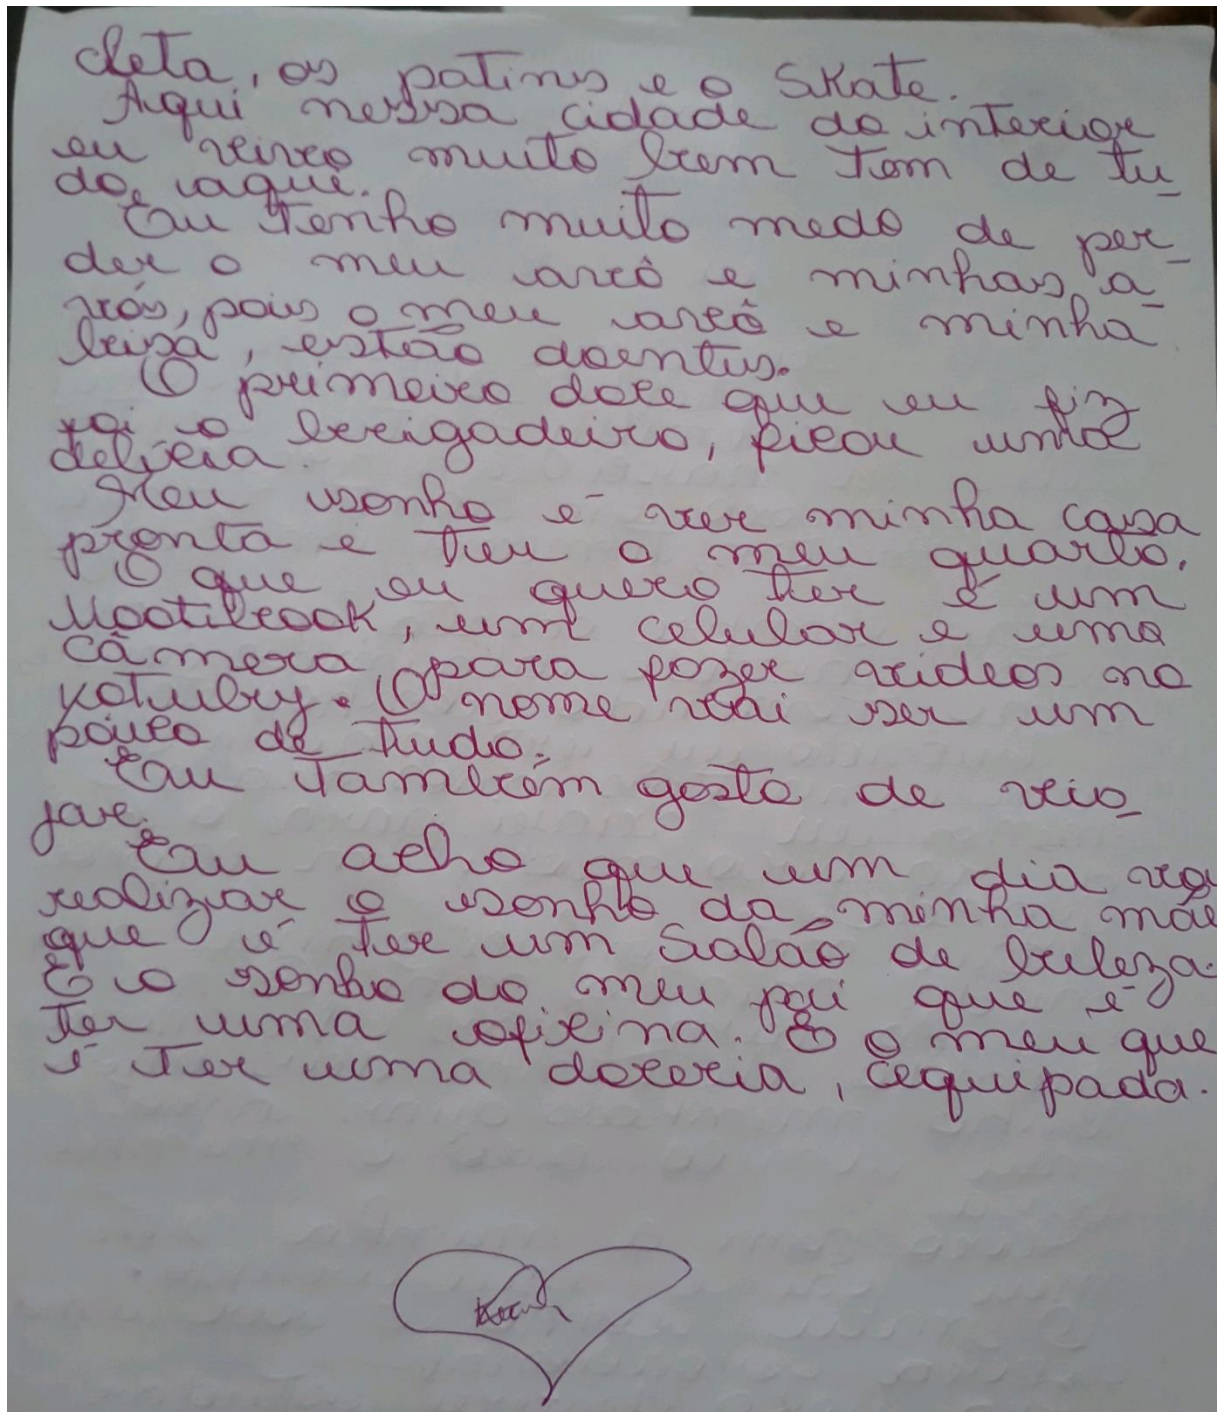 cleta, os patins e o Skate.
Aqui nessa cidade do interior
eu vivo muito bem tem de tu-
do, aqui.
Eu tenho muito medo de per-
der o meu avô e minhas a-
vós, pois o meu avô e minha
bisa, estão doentes.
O primeiro doce que eu fiz
foi o brigadeiro, ficou uma
delícia.
Meu sonho é ver minha casa
pronta e ter o meu quarto.
O que eu quero ter é um
Nootibook, um celular e uma
câmera para fazer videos no
yotuby. O nome vai ser um
pouco de tudo.
Eu também gosto de via-
jar.
Eu acho que um dia vou
realizar o sonho da minha mãe
que é ter um salão de beleza.
E o sonho do meu pai que é
ter uma oficina. E o meu que
é ter uma doceria, equipada.